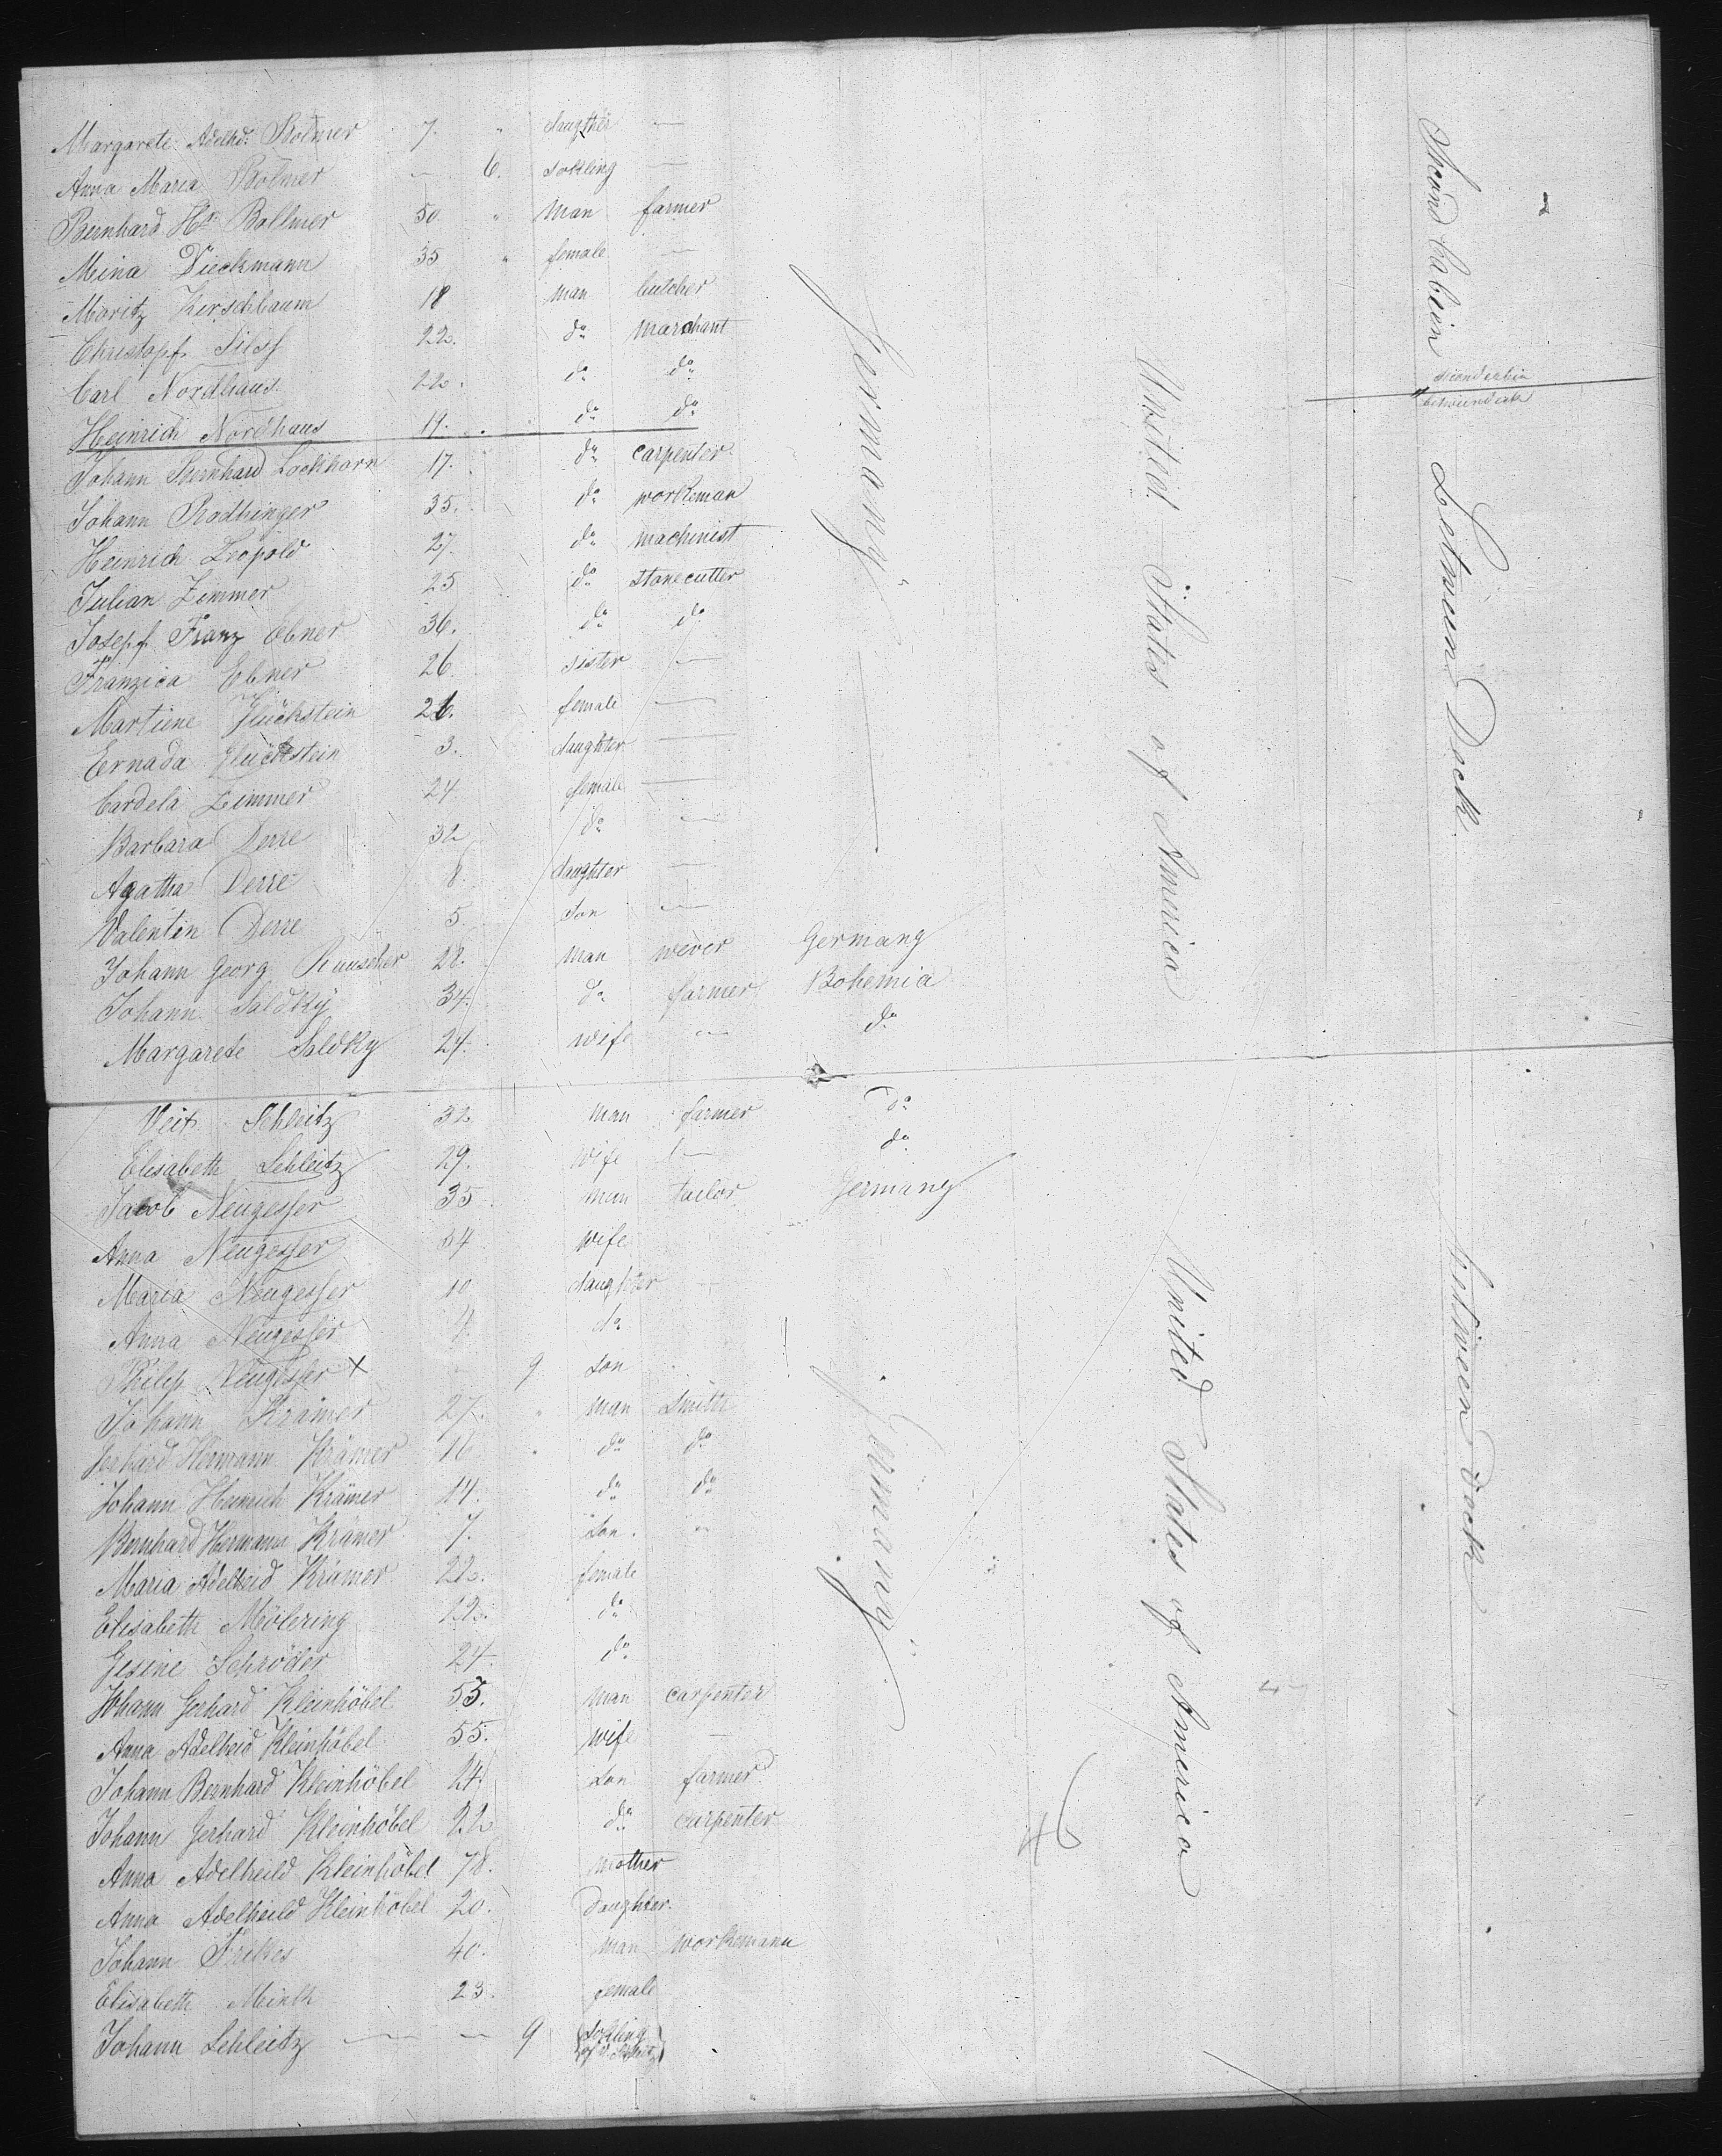 Margarete Adelhd: Bolmer 7. " daugther —
Anna Maria Bolmer — 6. sokling —
Bernhard Hr. Bollmer 50 " Man farmer
Mina Dieckmann 35 " female —
Moritz Kerschbaum 18 Man butcher
Christopf 22. do marchant
Carl Nordhaus 22. do do
Heinrich Nordhaus 19. do do
Second Cabein
secondcabin
betweendeck
Johann Bernhard Lockhorn 17. do carpenter.
Johann Rodhinger 35. do workeman
Heinrich Leopold 27. do machinist
Julian Zimmer 25 do stonecutter
Josepf Franz Ebner 36. do do
Franzica Ebner 26. sister —
Martiene Glückstein 26. female —
Ernada Glückstein 3. daughter —
Cardela Zimmer 24 female —
Barbara Derre 32 do —
Agatha Derre 8. daughter —
Valentin Derre 5. son —
Germany
United States of America
Betweendeck
Johann Georg Rauscher 28. man wever Germany
Johann Saldky 34. do farmer Bohemia
Margarete Saldky 24. wife — do
Veit Schleitz 32 Man farmer do
Elisabeth Schleitz 29. wife — do
Jacob Neugesser 35 man tailor Germany
Anna Neugesser 34 wife
Maria Neugesser 10 daughter —
Anna Neugesser 4 do
Philip Neugesser X 9 son
Johann Krämer 27. " man Smith
Gerhard Hermann Krämer 16 " do do
Johann Heinrich Krämer 14. do do
Bernhard Hermann Krämer 7. son. "
Maria Adelheid Krämer 22. female
Elisabeth Mölering 22. do
Gesine Schröder 24. do
Johann Gerhard Kleinhöbel 55. Man carpenter
Anna Adelheid Kleinhöbel 55. wife —
Johann Bernhard Kleinhöbel 24. son farmer.
Johann Gerhard Kleinhöbel 22 do carpenter
Anna Adelheild Kleinhöbel 78. mother
Anna Adelheild Kleinhöbel 20. Daughter.
Johann Frikes 40. Man workemann
Elisabeth Minth 23. female
Johann Schleitz — — 9 (sokling of V. Schleitz)
Germany
United States of America
between deck